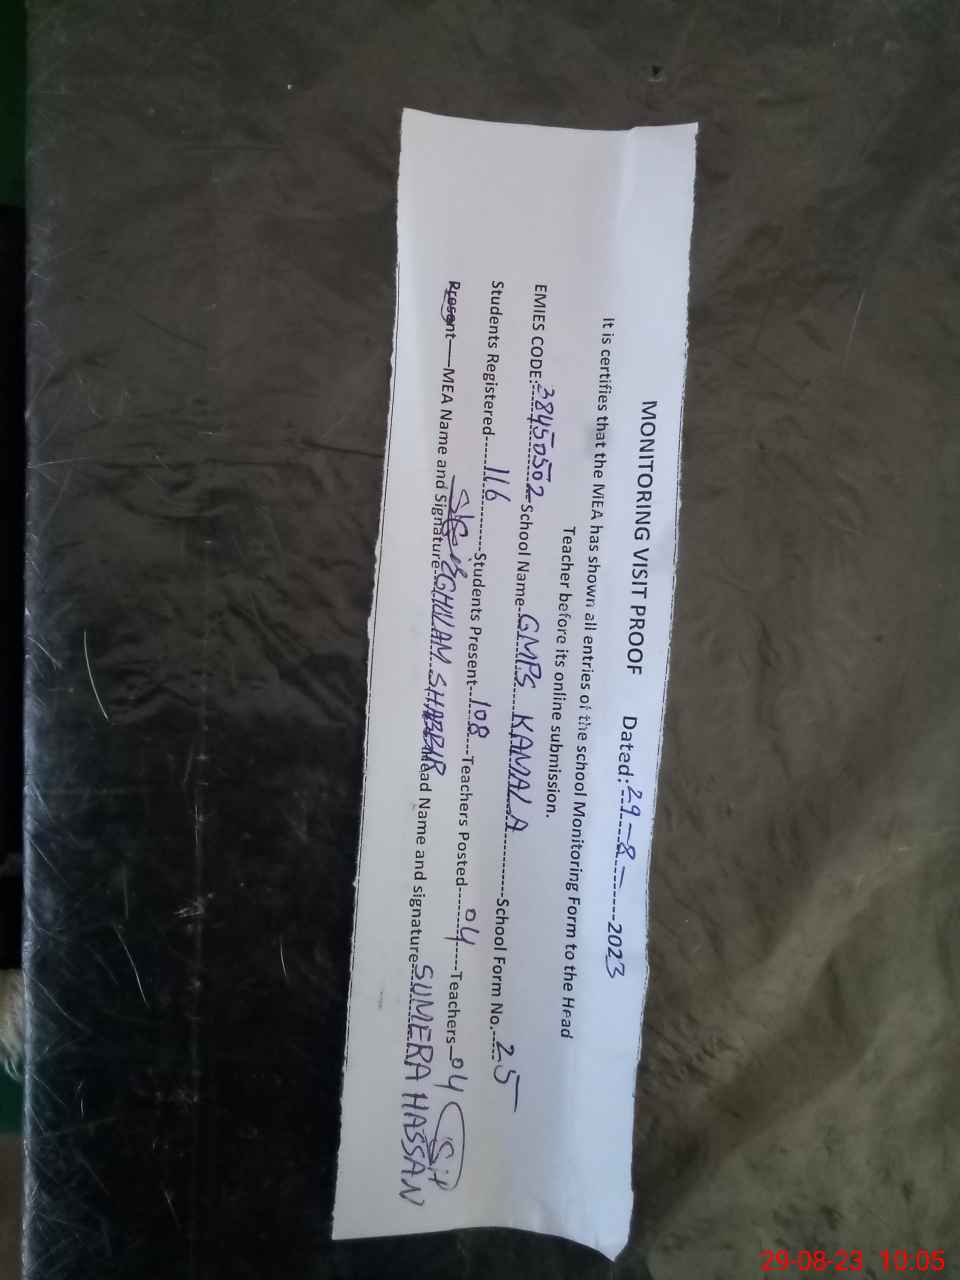 MONITORING VISIT PROOF Dated:29-8-2023
It is certifies that the MEA has shown all entries of the school Monitoring Form to the Head
Teacher before its online submission.
EMIES CODE:38450502 School Name GMPS KAMALA School Form No. 25
Students Registered 116 Students Present 108 Teachers Posted 04 Teachers 04
Present MEA Name and Signature GHULAM SHABBIR Head Name and signature SUMERA HASSAN
29-08-23 10:05